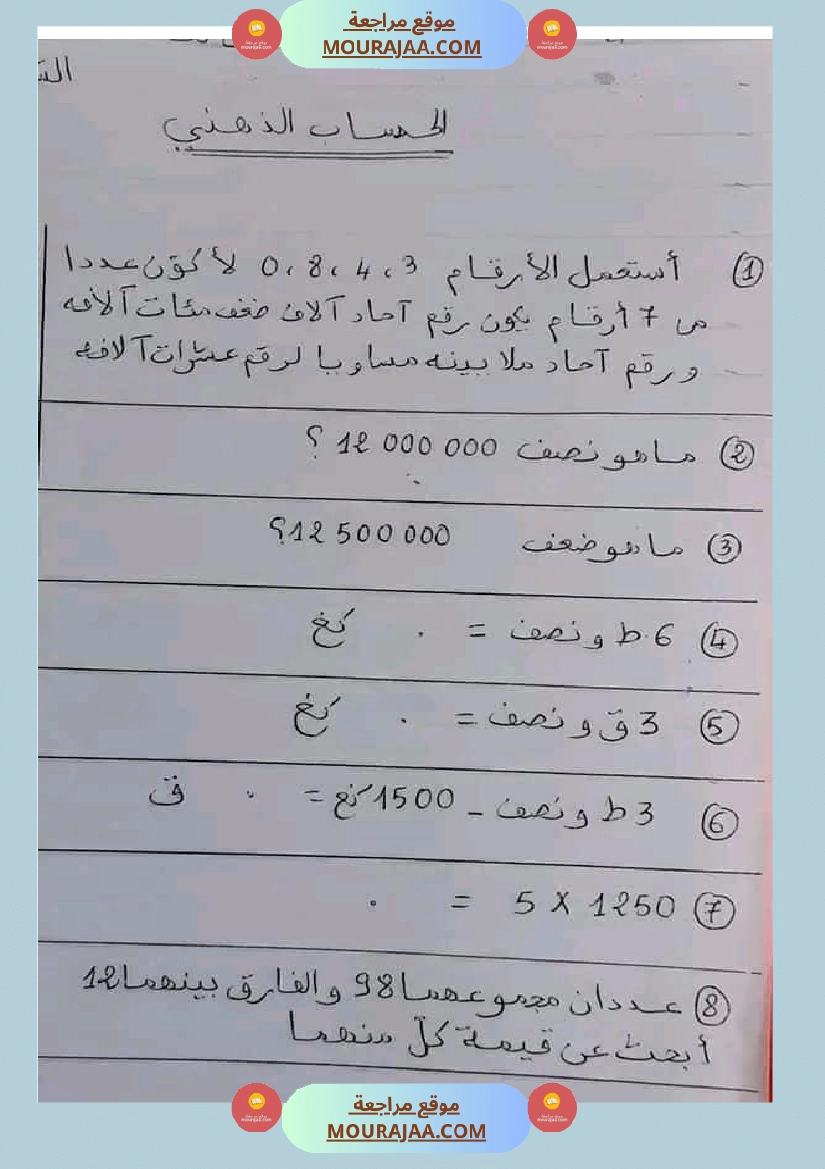 موقع مراجعة
MOURAJAA.COM
الحساب الذهني
① أستعمل الأرقام 3، 4، 8، 0 لأكوّن عددا
من 7 أرقام يكون رقم آحاد آلافه ضعف مئات آلافه
ورقم آحاد ملايينه مساويا لرقم عشرات آلافه
② ماهو نصف 12 000 000 ؟
③ ماهو ضعف 12 500 000؟
④ 6 ط ونصف = . كغ
⑤ 3 ق ونصف = . كغ
⑥ 3 ط ونصف - 1500 كغ = . ق
⑦ 1250 X 5 = .
⑧ عددان مجموعهما 98 والفارق بينهما 12
أبحث عن قيمة كلّ منهما
موقع مراجعة
MOURAJAA.COM